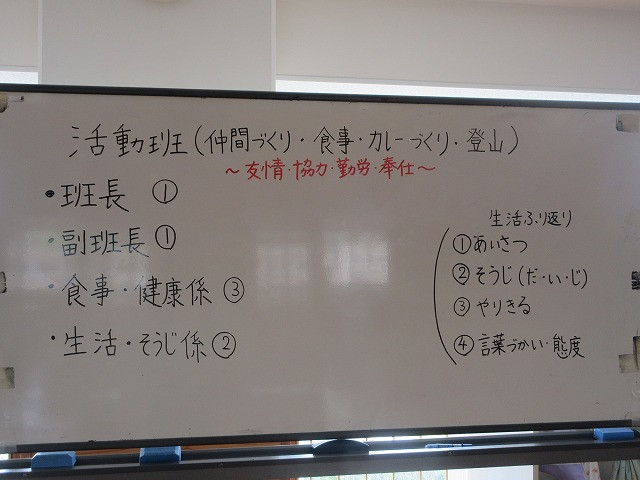 活動班(仲間づくり・食事・カレーづくり・登山)
～友情・協力・勤労・奉仕～
・班長 ①
・副班長 ①
・食事・健康係 ③
・生活・そうじ係 ②
生活ふり返り
①あいさつ
②そうじ(だ・い・じ)
③やりきる
④言葉づかい・態度